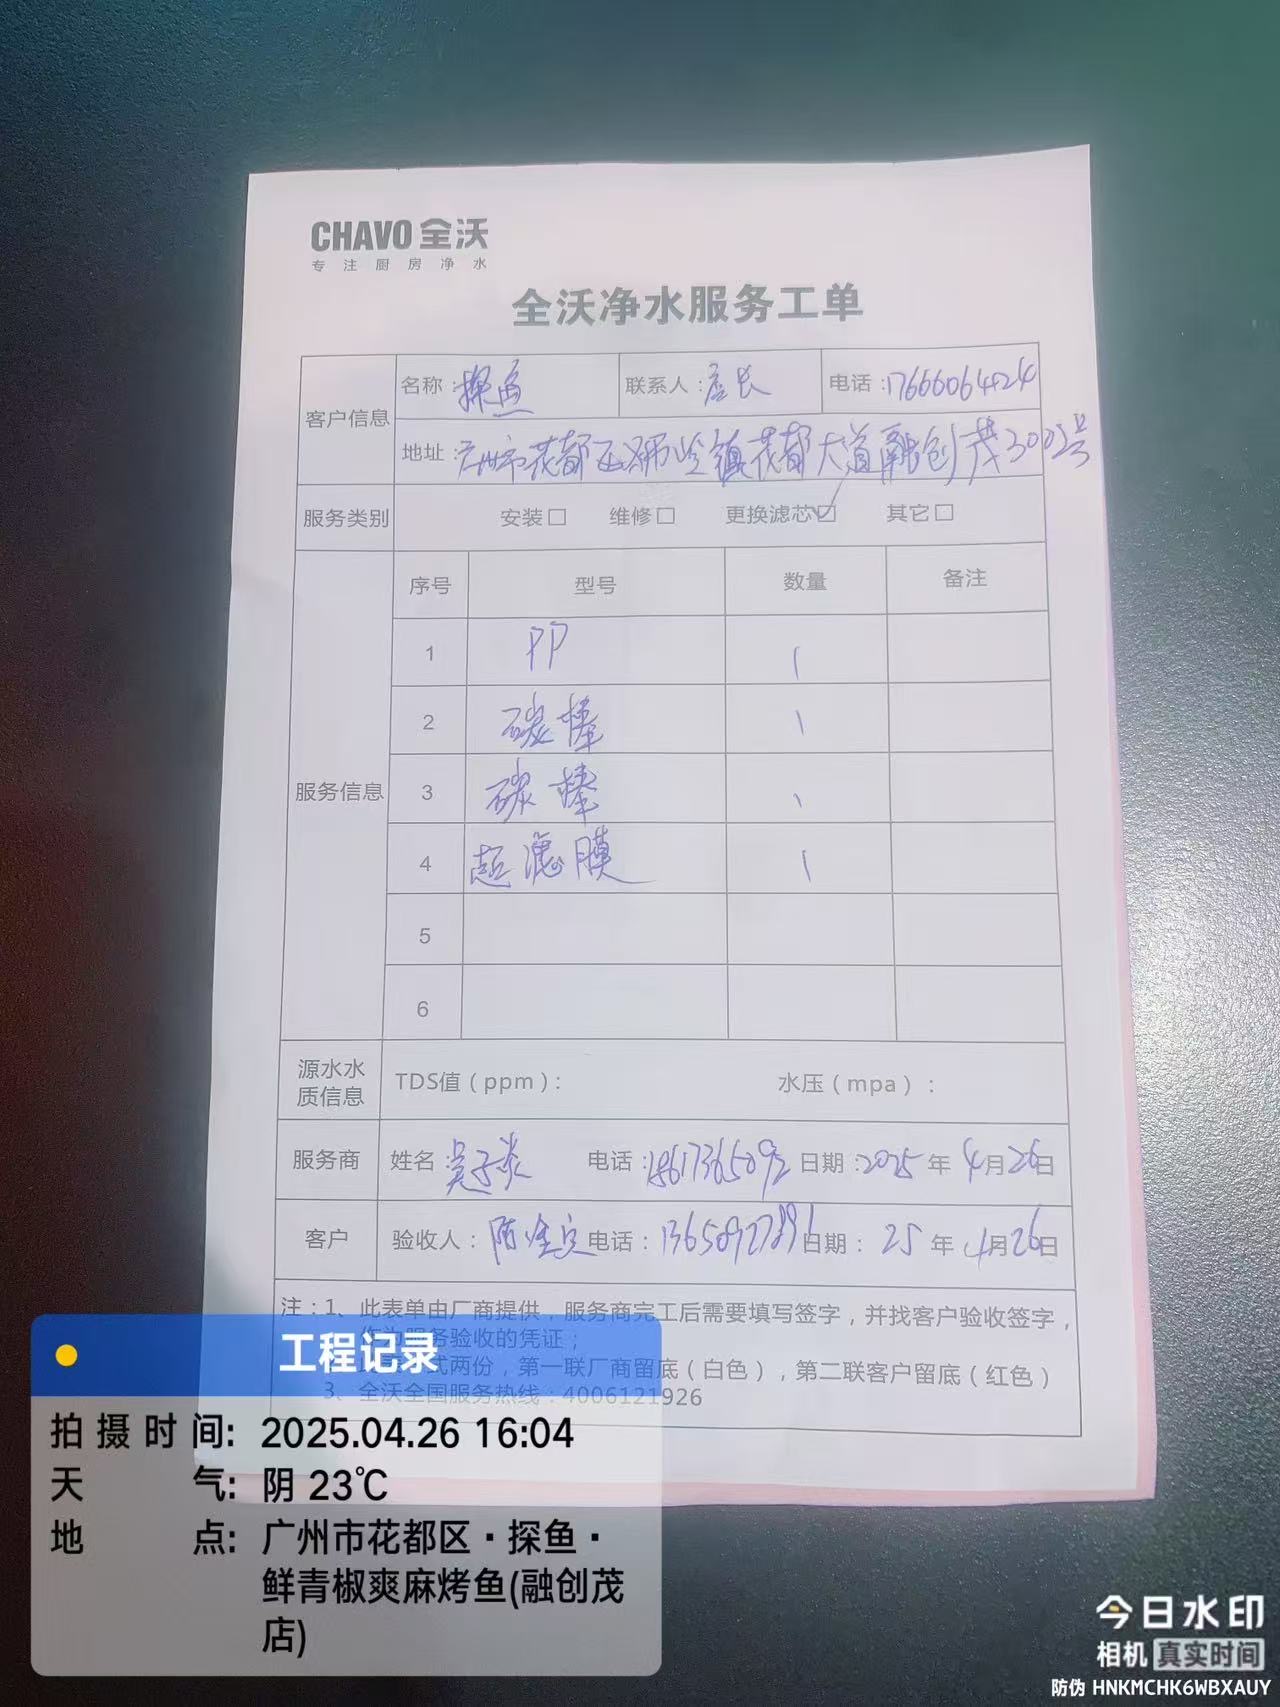 CHAVO 全沃
专注厨房净水
全沃净水服务工单
客户信息 名称：探鱼 联系人：店长 电话：17666064424
地址：广州市花都区狮岭镇花都大道融创茂3002号
服务类别 安装□ 维修□ 更换滤芯☑ 其它□
服务信息 序号 型号 数量 备注
1 PP 1
2 碳棒 1
3 碳棒 1
4 超滤膜 1
5
6
源水水质信息 TDS值（ppm）： 水压（mpa）：
服务商 姓名：吴子炎 电话： 日期：2025年4月26日
客户 验收人：陈 电话： 日期：25年4月26日
注：1、此表单由厂商提供，服务商完工后需要填写签字，并找客户验收签字，
作为服务验收的凭证；
式两份，第一联厂商留底（白色），第二联客户留底（红色）
3、全沃全国服务热线：4006121926
工程记录
拍摄时间：2025.04.26 16:04
天气：阴 23℃
地点：广州市花都区·探鱼·
鲜青椒爽麻烤鱼(融创茂
店)
今日水印
相机 真实时间
防伪 HNKMCHK6WBXAUY